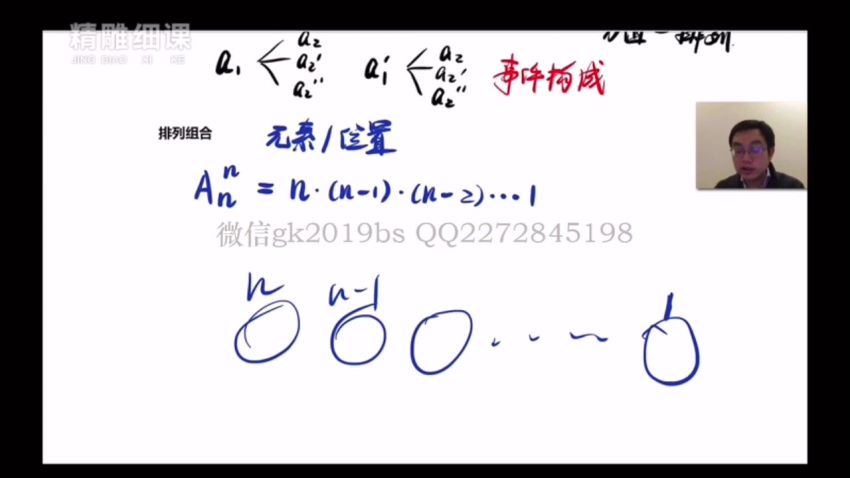 精雕细课
JING DIAO XI KE
a₂
a₁ a₂' a₁' a₂
a₂'' a₂'
a₂''
事件构成
排列组合 元素/位置
Aₙⁿ = n·(n-1)·(n-2)···1
微信gk2019bs QQ2272845198
n n-1 1